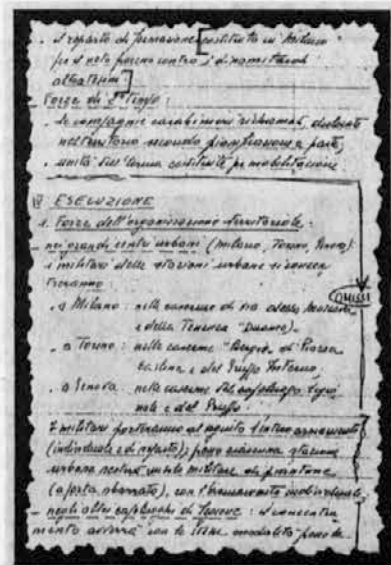 . 1 reparto di formazione [costituito in Milano
per il noto piano contro i dinamitardi
altoatesini]
Forze di 2° tempo:
. le compagnie carabinieri richiamati, dislocate
nel territorio secondo pianificazione a parte;
. unità dell'Arma costituite per mobilitazione
ESECUZIONE
1. Forze dell'organizzazione territoriale:
- nei grandi centri urbani (Milano, Torino, Genova):
i militari delle stazioni urbane si concen
treranno:
OMISSIS
. a Milano: nelle caserme di via
e della Tenenza "Duomo".
. a Torino: nelle caserme "Bergia" di Piazza
Carlina e del Gruppo Interno;
. a Genova: nelle caserme del capoluogo
e del Gruppo.
I militari porteranno al seguito l'intero armamento
(individuale e di reparto); presso ciascuna stazione
urbana resterà un solo militare di piantone
(a porta sbarrata), con l'armamento individuale.
- negli altri capoluoghi di Legione: il concentra
mento avverrà con le stesse modalità presso le